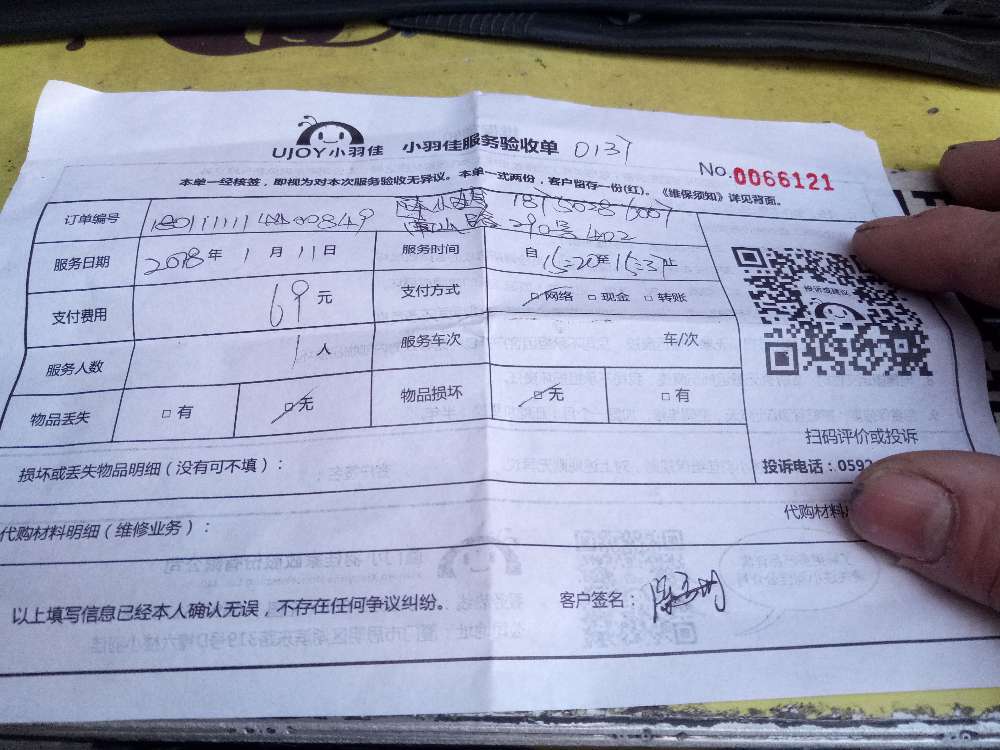 UJOY小羽佳 小羽佳服务验收单 0137
No.0066121
本单一经核签，即视为对本次服务验收无异议。本单一式两份，客户留存一份(红)。《维保须知》详见背面。
订单编号
服务日期 2018年 1月 11日 服务时间 自 15:20至 15:37止
支付费用 69元 支付方式 □网络 □现金 □转账
投诉或建议
服务人数 1人 服务车次 车/次
物品丢失 □有 □无 物品损坏 □无 □有
扫码评价或投诉
损坏或丢失物品明细（没有可不填）： 投诉电话：0592
代购材料明细（维修业务）： 代购材料
以上填写信息已经本人确认无误，不存在任何争议纠纷。 客户签名：